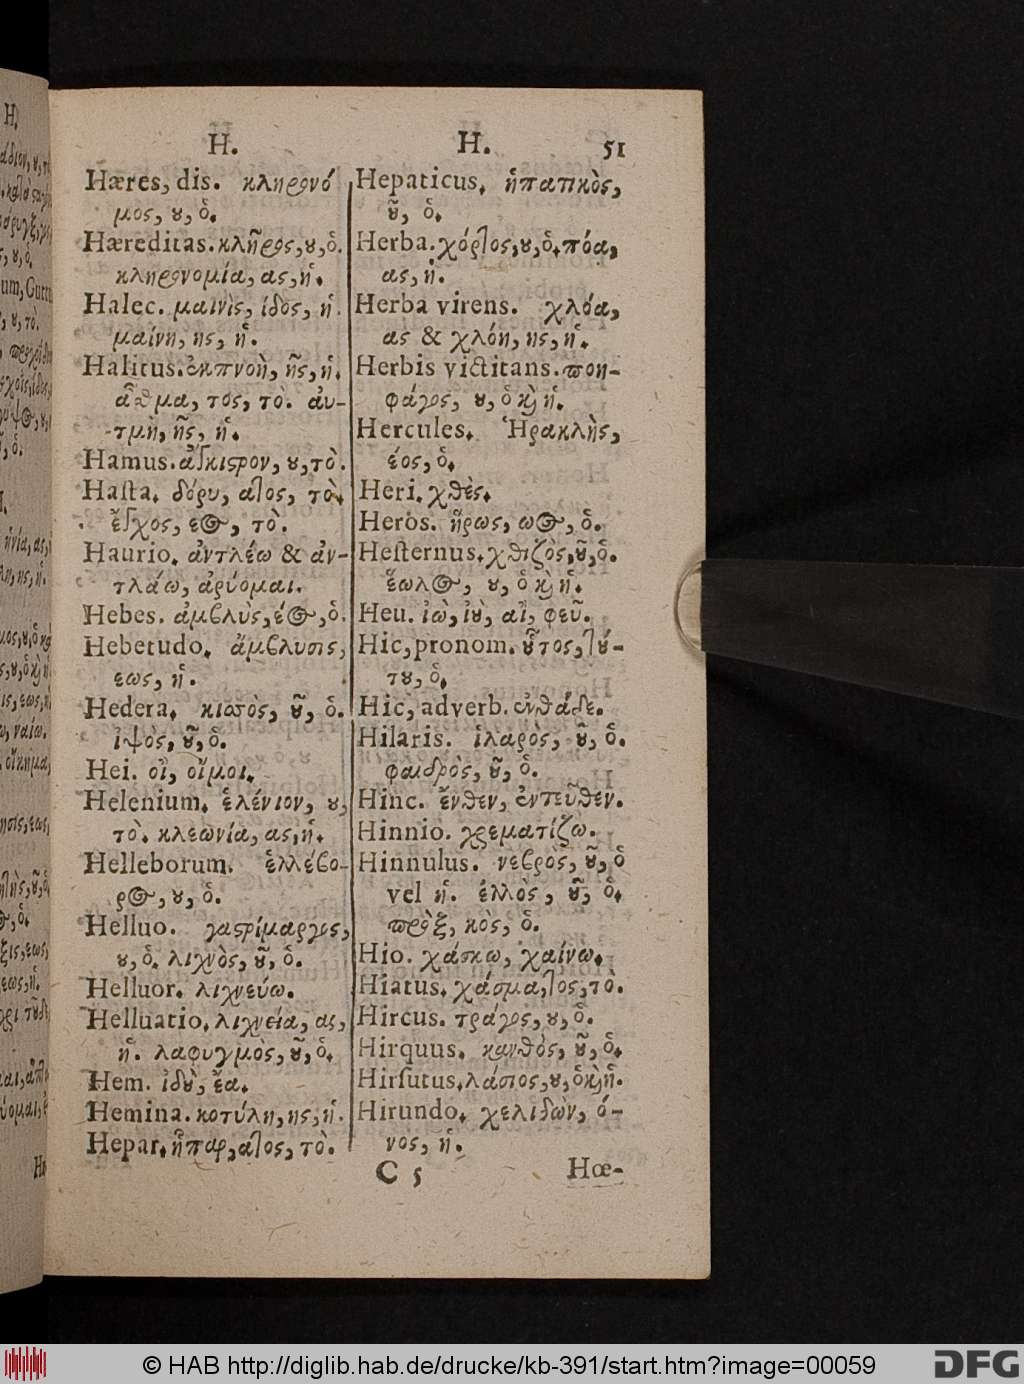 H.
Hæres, dis. κληρονό
μος, ου, ὁ.
Hæreditas. κλῆρος, ου, ὁ.
κληρονομία, ας, ἡ.
Halec. μαινὶς, ίδος, ἡ.
μαίνη, ης, ἡ.
Halitus. ἐκπνοὴ, ῆς, ἡ.
ἆσθμα, τος, τὸ. ἀυ-
τμὴ, ῆς, ἡ.
Hamus. ἄγκιστρον, ου, τὸ.
Hasta. δόρυ, ατος, τὸ.
ἔγχος, εος, τὸ.
Haurio. ἀντλέω & ἀν-
τλάω, ἀρύομαι.
Hebes. ἀμβλὺς, έος, ὁ.
Hebetudo. ἄμβλυσις,
εως, ἡ.
Hedera. κισσὸς, οῦ, ὁ.
ἰψὸς, οῦ, ὁ.
Hei. οἴ, οἴμοι.
Helenium. ἑλένιον, ου,
τὸ. κλεωνία, ας, ἡ.
Helleborum. ἑλλέβο-
ρος, ου, ὁ.
Helluo. γαστρίμαργος,
ου, ὁ. λιχνὸς, οῦ, ὁ.
Helluor. λιχνεύω.
Helluatio. λιχνεία, ας,
ἡ. λαφυγμὸς, οῦ, ὁ.
Hem. ἰδοὺ, ἔα.
Hemina. κοτύλη, ης, ἡ.
Hepar. ἧπαρ, ατος, τὸ.
H. 51
Hepaticus. ἡπατικὸς,
οῦ, ὁ.
Herba. χόρτος, ου, ὁ. πόα,
ας, ἡ.
Herba virens. χλόα,
ας & χλόη, ης, ἡ.
Herbis victitans. ποη-
φάγος, ου, ὁ καὶ ἡ.
Hercules. Ἡρακλὴς,
έος, ὁ.
Heri. χθὲς.
Heros. ἥρως, ωος, ὁ.
Hesternus. χθιζὸς, οῦ, ὁ.
ἕωλος, ου, ὁ καὶ ἡ.
Heu. ἰὼ, ἰοὺ, αἰ, φεῦ.
Hic, pronom. οὗτος, τού-
του, ὁ.
Hic, adverb. ἐνθάδε.
Hilaris. ἱλαρὸς, οῦ, ὁ.
φαιδρὸς, οῦ, ὁ.
Hinc. ἔνθεν, ἐντεῦθεν.
Hinnio. χρεματίζω.
Hinnulus. νεβρὸς, οῦ, ὁ
vel ἡ. ἑλλὸς, οῦ, ὁ.
πρὸξ, κὸς, ὁ.
Hio. χάσκω, χαίνω.
Hiatus. χάσμα, τος, τὸ.
Hircus. τράγος, ου, ὁ.
Hirquus. κανθὸς, οῦ, ὁ.
Hirsutus. λάσιος, ου, ὁ καὶ ἡ.
Hirundo. χελιδὼν, ό-
νος, ἡ.
C 5 Hœ-
© HAB http://diglib.hab.de/drucke/kb-391/start.htm?image=00059 DFG